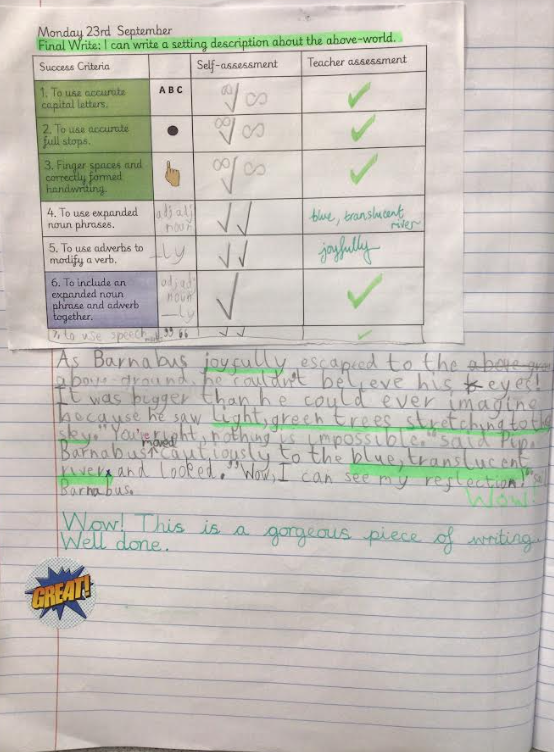 Monday 23rd September
Final Write: I can write a setting description about the above-world.
Success Criteria Self-assessment Teacher assessment
1. To use accurate capital letters. A B C
2. To use accurate full stops.
3. Finger spaces and correctly formed handwriting.
4. To use expanded noun phrases. adj adj noun blue, translucent river
5. To use adverbs to modify a verb. -ly joyfully
6. To include an expanded noun phrase and adverb together. adj adj noun -ly
7. to use speech
As Barnabus joyfully escaped to the above-
above-ground, he couldn't believe his eyes!
It was bigger than he could ever imagine
because he saw light, green trees stretching to the
sky. "You're right, nothing is impossible." said Pip.
Barnabus moved cautiously to the blue, translucent
river and looked. "Wow, I can see my reflection!"
Barnabus.
Wow!
Wow! This is a gorgeous piece of writing.
Well done.
GREAT!